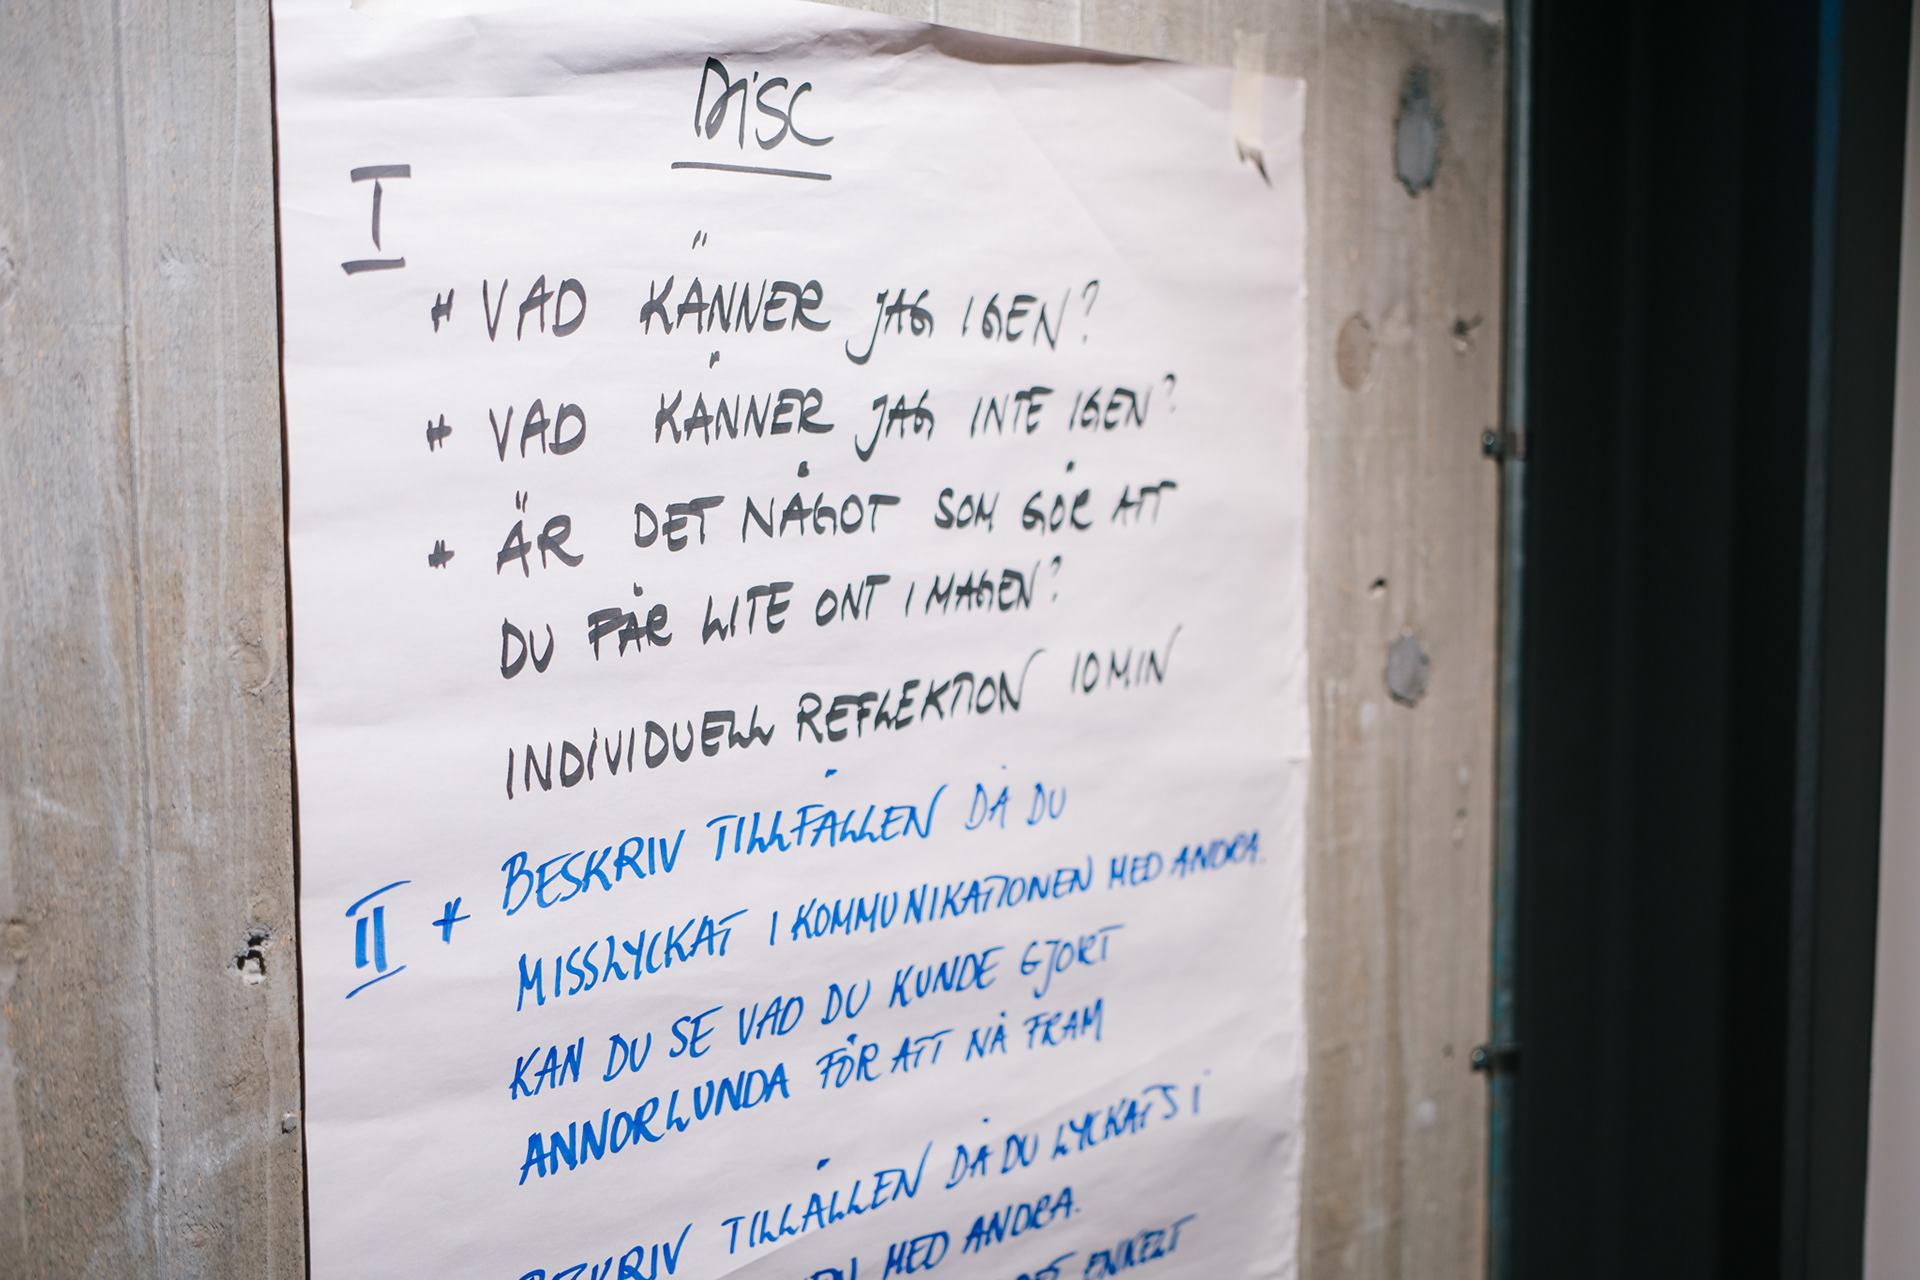 DiSC
I
# VAD KÄNNER JAG IGEN?
# VAD KÄNNER JAG INTE IGEN?
# ÄR DET NÅGOT SOM GÖR ATT
DU FÅR LITE ONT I MAGEN?
INDIVIDUELL REFLEKTION 10 MIN
II # BESKRIV TILLFÄLLEN DÅ DU
MISSLYCKAT I KOMMUNIKATIONEN MED ANDRA.
KAN DU SE VAD DU KUNDE GJORT
ANNORLUNDA FÖR ATT NÅ FRAM
BESKRIV TILLÄLLEN DÅ DU LYCKATS I
MED ANDRA.
ENKELT